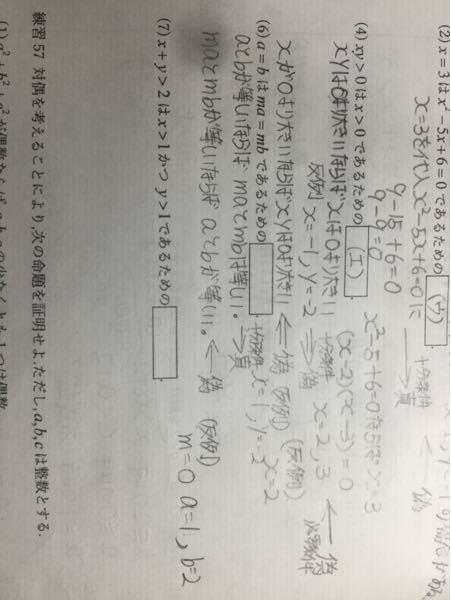 (2) x=3 は x²-5x+6=0 であるための (ウ)
x=3を代入 x²-5x+6=0に
9-15+6=0
9-9=0
十分条件
真
x²-5+6=0ならばx=3
(x-2)(x-3)=0
x=2,3
偽
必要条件
(4) xy>0 は x>0 であるための (エ)
xyは0より大きいならばxは0より大きい
反例 x=-1, y=-2
偽
xが0より大きいならばxyは0より大きい
偽 (反例) x=2
x=1, y=-2
(6) a=b は ma=mb であるための
aとbが等しいならば maとmbは等しい。
十分条件
真
maとmbが等しいならば aとbが等しい。 ← 偽 (反例)
m=0 a=1, b=2
(7) x+y>2 は x>1 かつ y>1 であるための
練習 57 対偶を考えることにより,次の命題を証明せよ.ただし,a,b,c は整数とする.